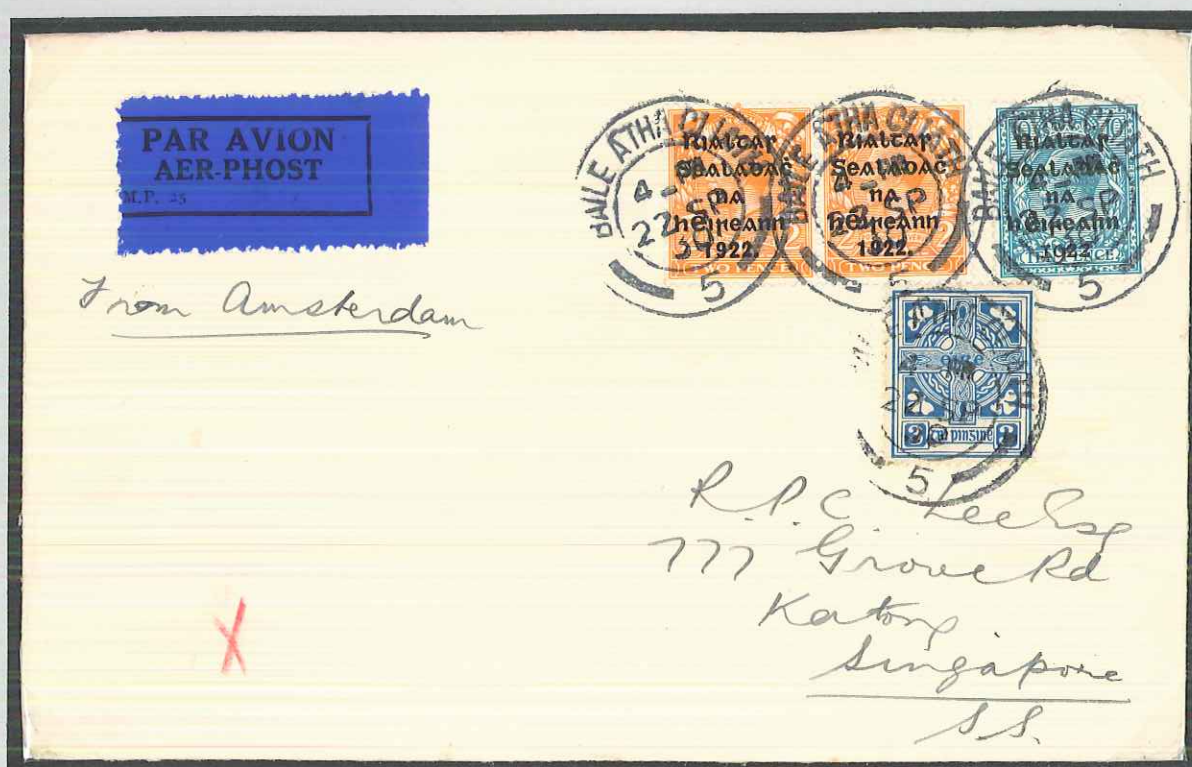 PAR AVION
AER-PHOST
M.P. 25
From Amsterdam
BAILE ATHA CLIATH
4-
22 SP
5
Rialtar
Sealadaċ
na
hÉireann
1922.
TWO PENCE
BAILE ATHA CLIATH
4-
SP
5
Rialtar
Sealadaċ
na
hÉireann
1922.
TWO PENCE
BAILE ATHA CLIATH
4-
SP
5
Rialtar
Sealadaċ
na
hÉireann
1922
éire
3 pinsine 3
4
22 SP
5
R.P.C. Lee Esq
777 Grove Rd
Katong
Singapore
S.S.
X